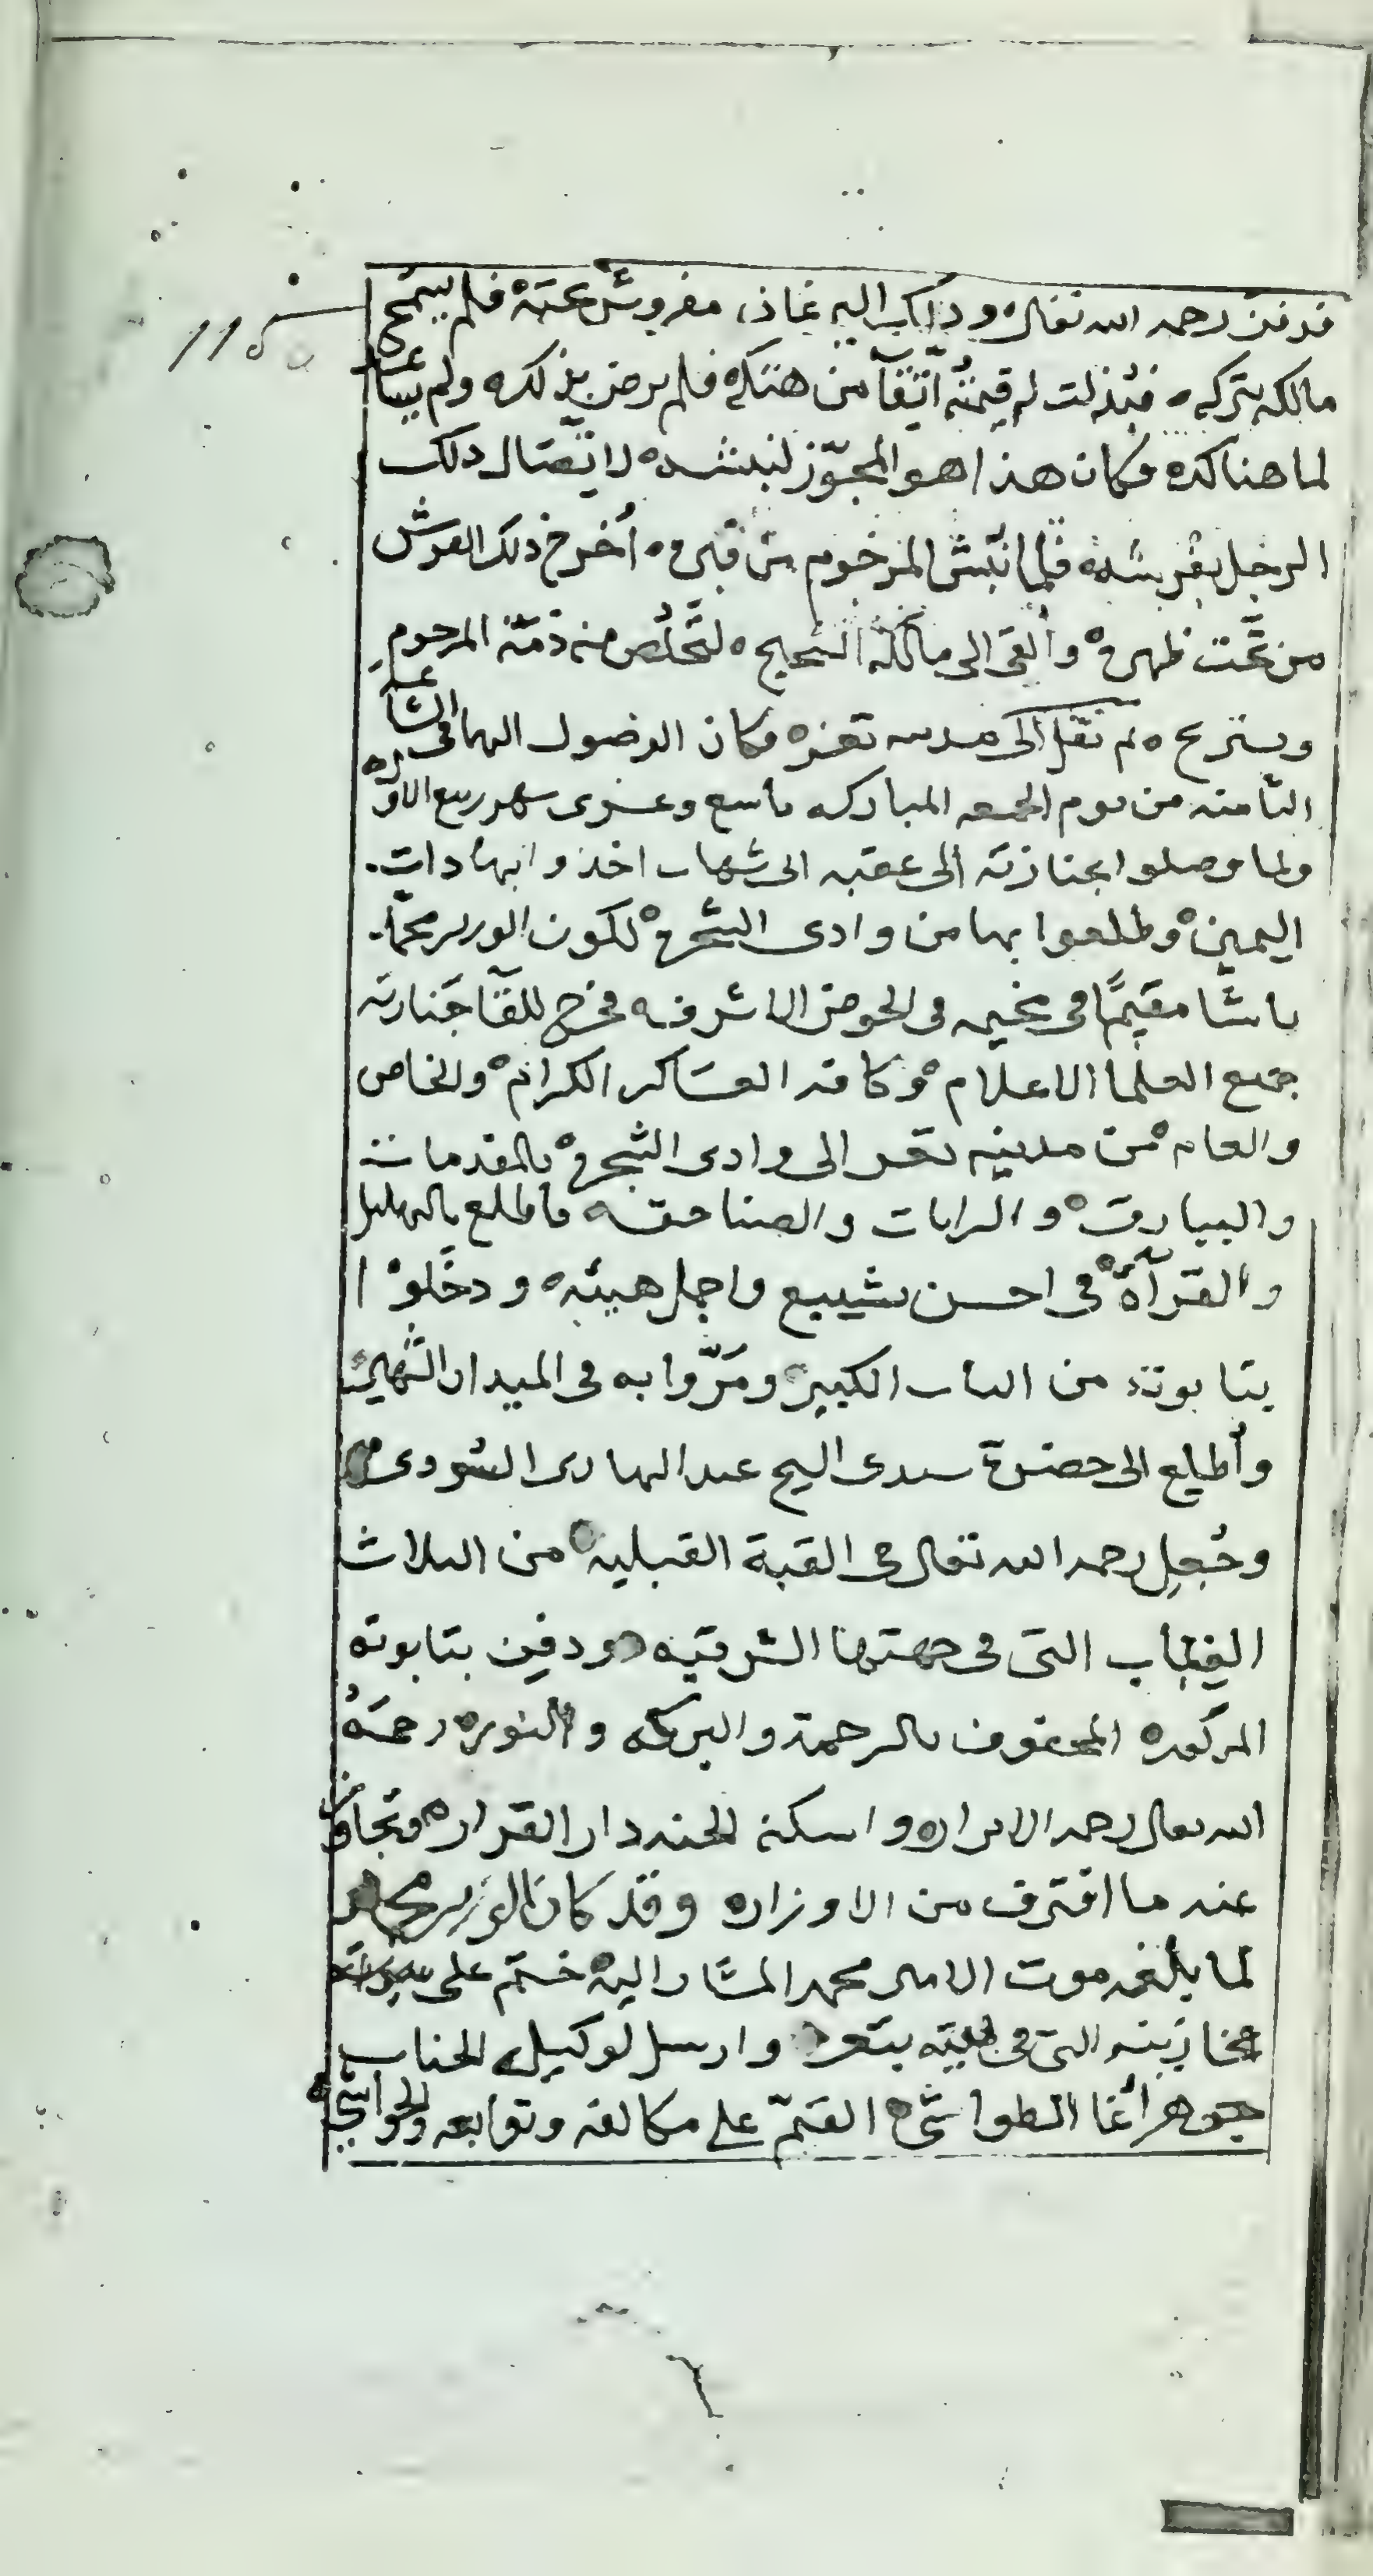 فدفن رحمه الله تعالى وذلك اليه مفروش تحته فلم يسمح
مالكه بتركه فبذلت له قيمته من هتكه فلم يرض بذلك ولم
لما هنالك فكان هذا هو المجوز لنبشه لا تصال ذلك
الرجل بفرشه فلما انبش المرحوم من قبره أخرج ذلك الفرش
من تحت ظهره وألقى الى مالكه الشحيح لتخلص منه ذمة المرحوم
ويستريح ثم نقل الى مدينه تعز وكان الوصول اليها في الساعه
الثامنه من يوم الجمعه المباركه تاسع وعشرى شهر ربيع الاول
ولما وصلوا بجنازته الى عقبه اخذوا بها ذات
اليمين وطلعوا بها من وادى الشجره لكون الوزير محمد
باشا مقيمًا في مخيمه فى الحوض الاشرفيه فخرج للقا جنازته
جميع العلما الاعلام وكافه العساكر الكرام والخاص
والعام من مدينه تعز الى وادى الشجره بالمقدمات
والبيارق والرايات والصناجقه فاطلع بالتهليل
والقرآة في احسن تشييع واجمل هيئه ودخلوا
بتابوته من الباب الكبير ومروا به فى الميدان
وأطلع الى حضرة سيدى الشيخ عبدالهادى السودى
وجعل رحمه الله تعالى فى القبة القبليه من الثلاث
القباب التى فى جهتها الشرقيه ودفن بتابوته
المذكور المحفوف بالرحمة والبركه والنور رحمه
الله تعالى رحمه الابرار واسكنه الجنه دار القرار وتجاوز
عنه ما اقترف من الاوزار وقد كان الوزير محمد
لما بلغه موت الامير محمد المشار اليه ختم على
مخازينه التى فى بيته بتعز وارسل لوكيله الجناب
جوهر أغا الطواشى القيم على مكالفه وتوابعه والحواشى